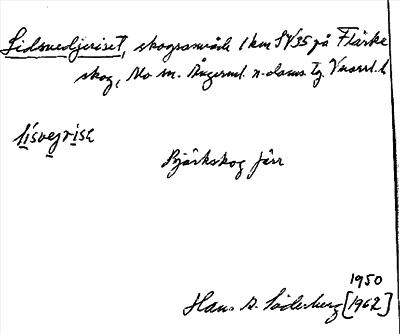 Lidsvedjeriset, skogsområde 1 km SV35 på Flärke
skog, Mo sn. Ångerml. n. doms. Tg. Vnorrl. l.
lisvejrise
Björkskog förr
1950
Hans A. Söderberg [1962]